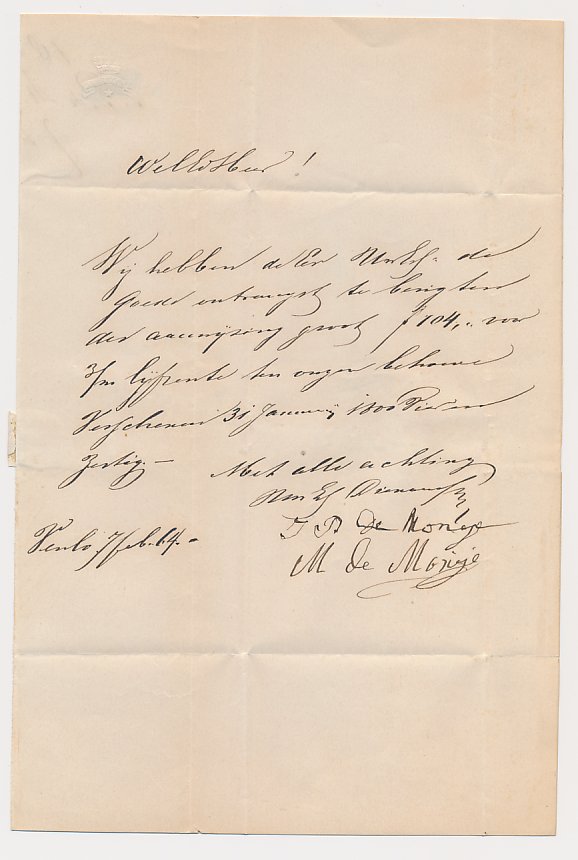 WelEd Heer!
Wij hebben de Eer UwEd. de
goede ontvangst te berigten
der aanwijzing groot f 104,.. voor
3/m lijfrente ten onzen behoeve
Verschenen 31 Januarij 1800 Vier en
zestig.—
Met alle achting
UwEd. Dienaressen
Venlo, 7 feb. 64.
J B de Monéje
M de Monéje